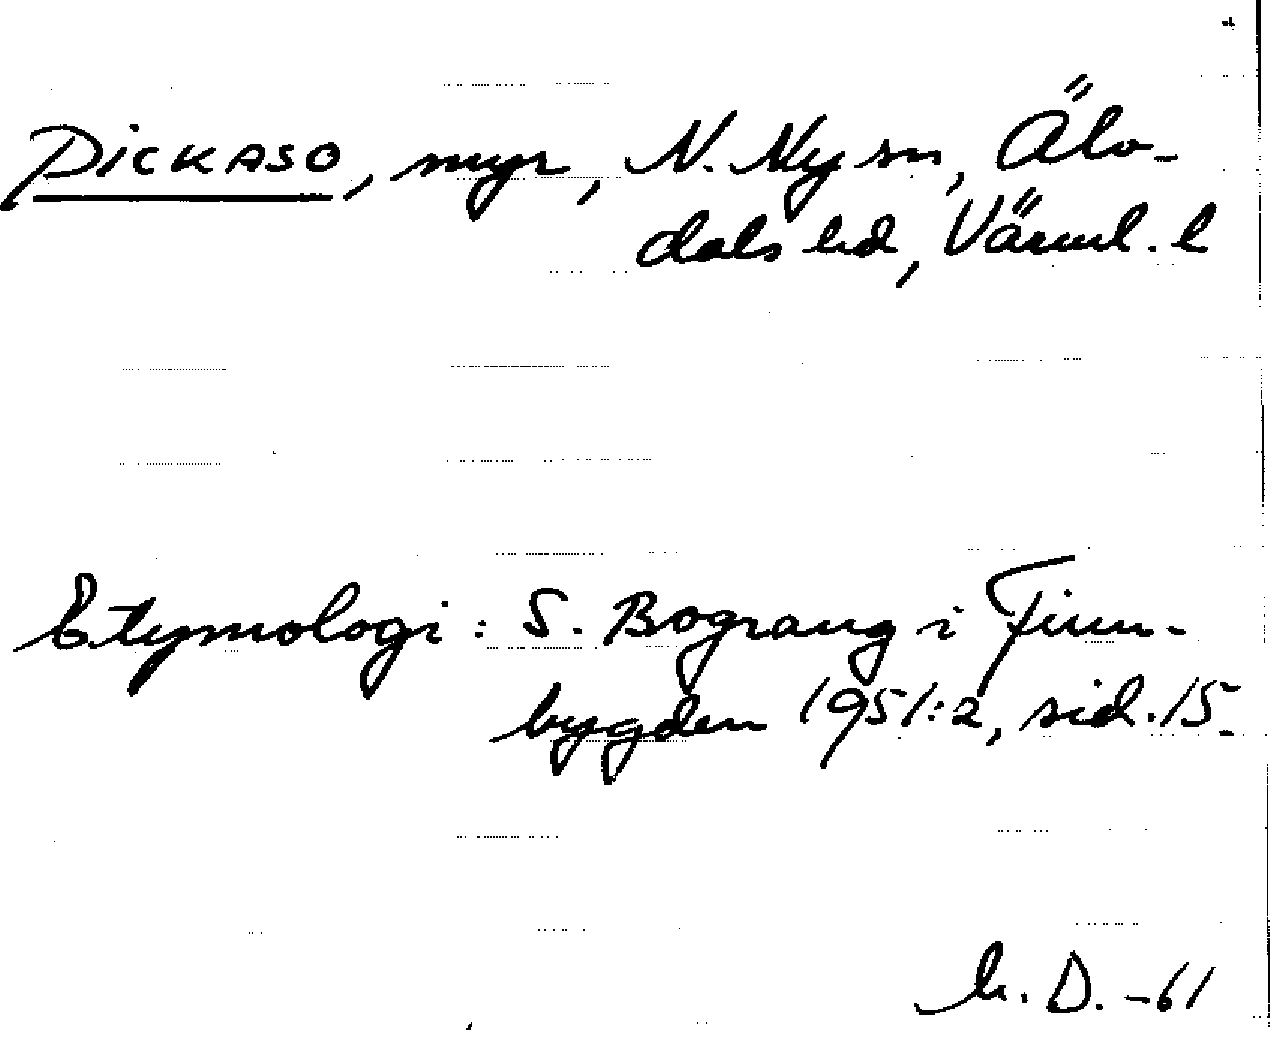 PICKASO, myr, N. Ny sn, Älv-
dals hd, Värml. l
Etymologi: S. Bograng i Finn-
bygden 1951:2, sid. 15.
D. -61